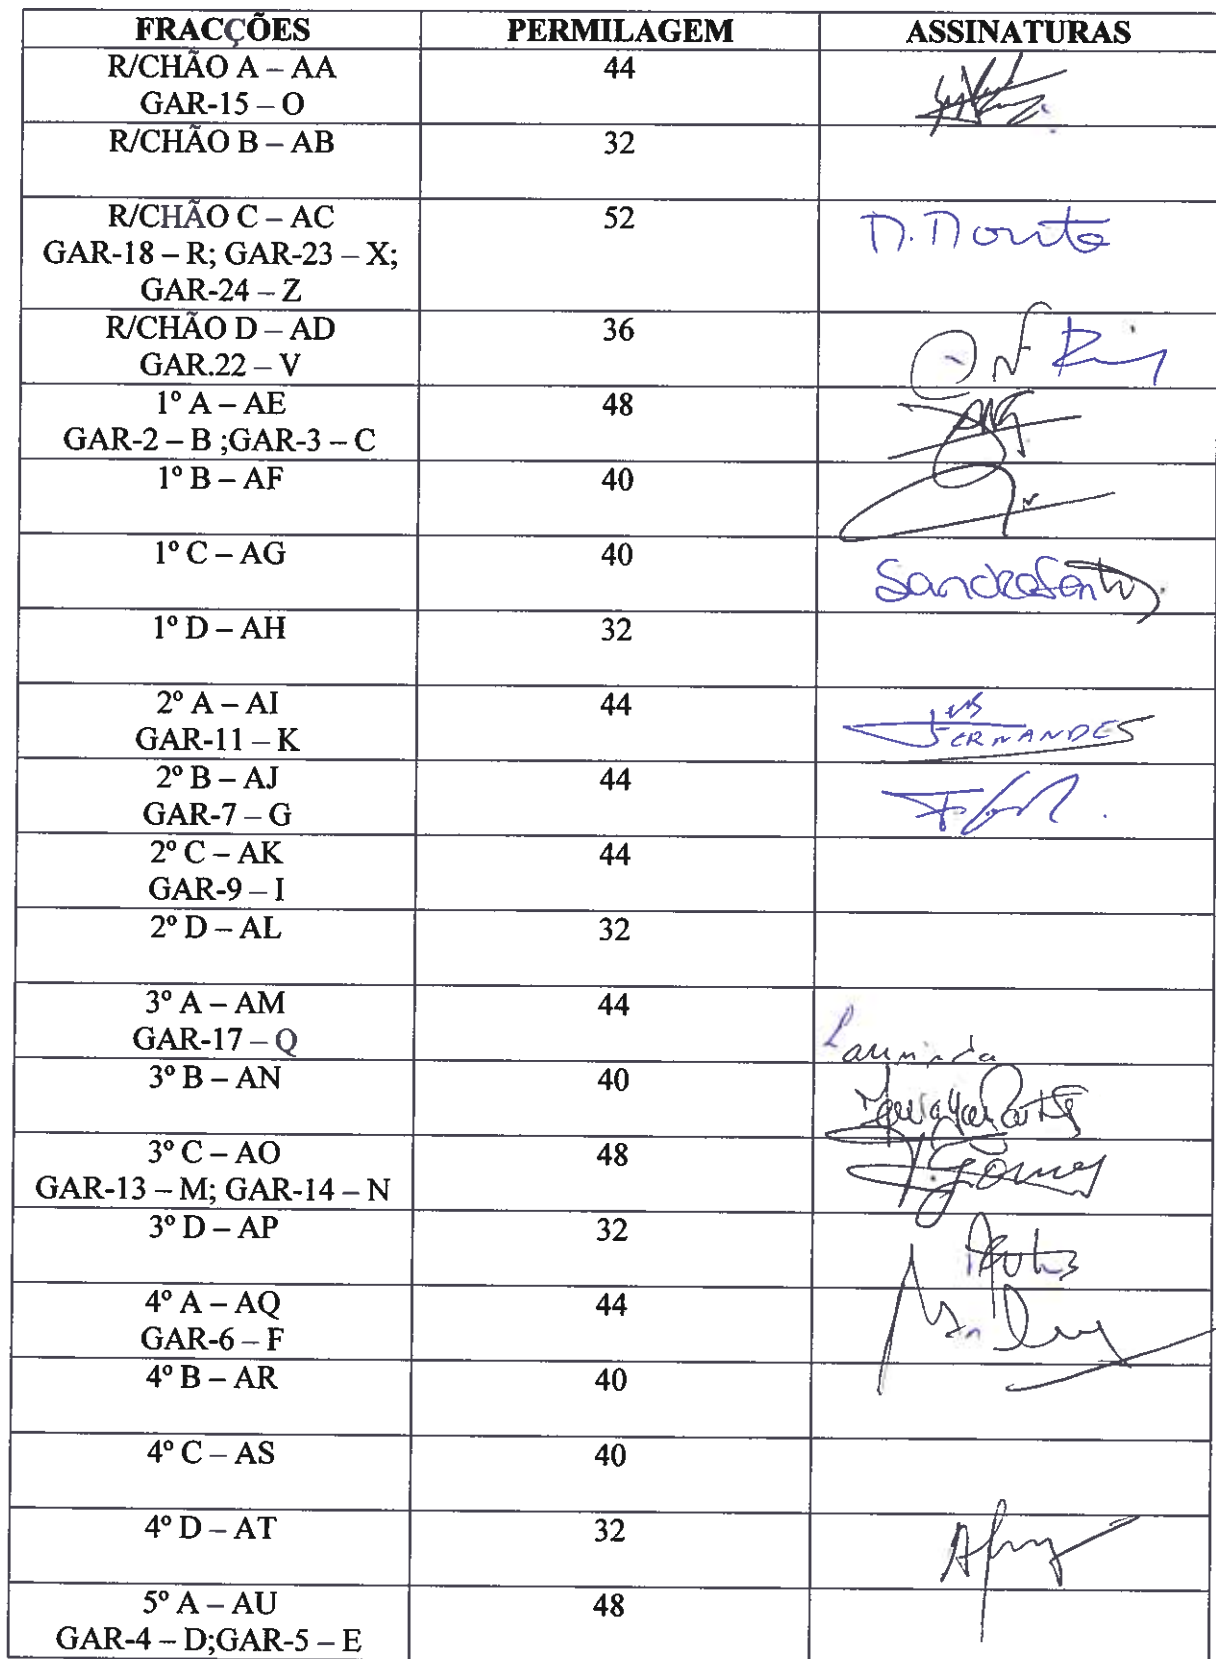 FRACÇÕES PERMILAGEM ASSINATURAS
R/CHÃO A – AA 44
GAR-15 – O
R/CHÃO B – AB 32
R/CHÃO C – AC 52
GAR-18 – R; GAR-23 – X;
GAR-24 – Z
R/CHÃO D – AD 36
GAR.22 – V
1º A – AE 48
GAR-2 – B ;GAR-3 – C
1º B – AF 40
1º C – AG 40 Sandra
1º D – AH 32
2º A – AI 44
GAR-11 – K FERNANDES
2º B – AJ 44
GAR-7 – G
2º C – AK 44
GAR-9 – I
2º D – AL 32
3º A – AM 44
GAR-17 – Q Laurinda
3º B – AN 40
3º C – AO 48 Gomes
GAR-13 – M; GAR-14 – N
3º D – AP 32
4º A – AQ 44
GAR-6 – F
4º B – AR 40
4º C – AS 40
4º D – AT 32
5º A – AU 48
GAR-4 – D;GAR-5 – E